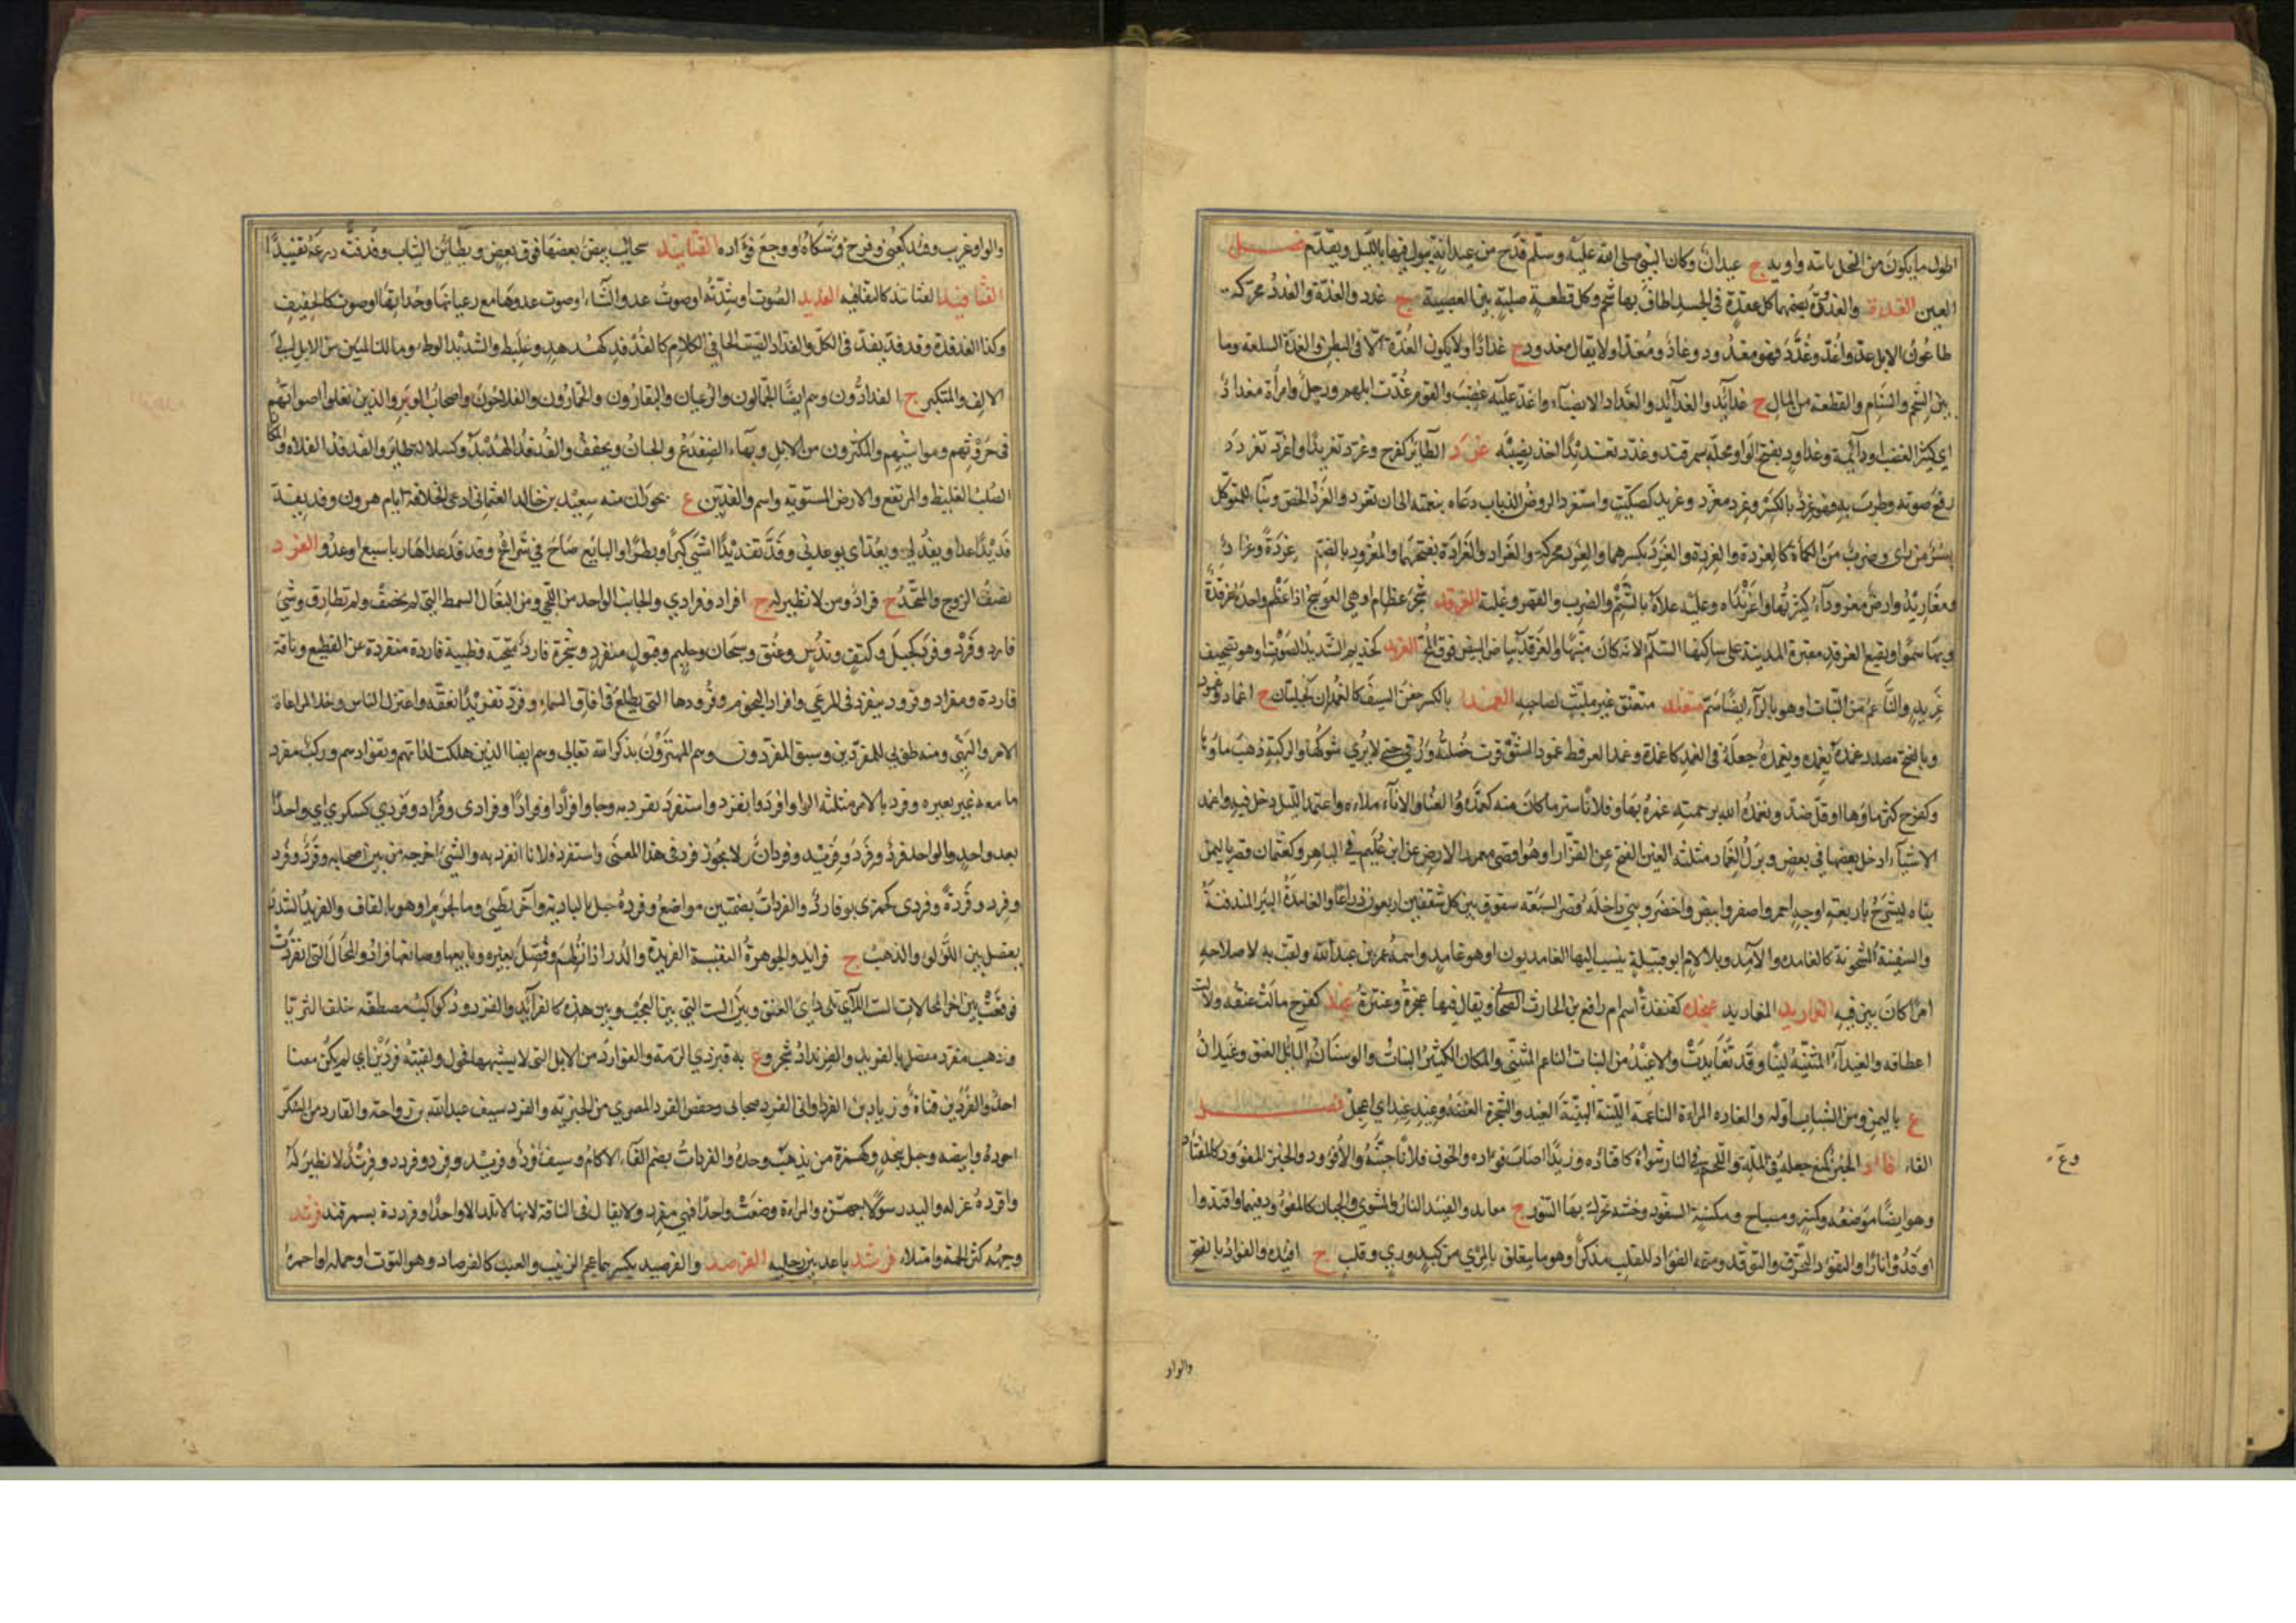 اطول ما يكون من النخل يائية واوية ج عيدان وكان النبي صلى الله عليه وسلم قدح من عيدانة يبول فيها بالليل ويقدم فصل
الغين الغدة والغددة بضمهما كل عقدة في الجسد اطاف بها شحم وكل قطعة صلبة بين العصبة ج غدد والغدة والغدد محركة
طاعون الابل غد واغد وغدد فهو مغدود وغاد ومغد ولا يقال مغدود ج غداد او لا يكون الغدة الا في البطن والغدة السلعة وما
بين الشحم والسنام والقطعة من المال ج غدائد والغدائد والغداد الانصباء واغد عليه غضب والقوم غدت ابلهم ورجل وامراة مغداد
اي كثير الغضب او دائمه وغداود بفتح الواو محلة بسمرقند وغدد تغديدا اخذ نصيبه غرد الطائر كفرح وغرد تغريدا واغرد تغرد
رفع صوته وطرب به فهو غرد بالكسر وغرد مغرد وغريد كسكيت واستغرد الروض الذباب دعاه بنغمته الى ان تغرد والغرد الخص وبناء للمتوكل
بسر من راى وضرب من الكماة كالغردة والغردة والغرد بكسرهما والغرد محركة والغراد والغرادة بفتحهما والمغرود بالضم ج غردة وغراد
ومغاريد وارض مغروداء كثيرتها واغرنداه وعليه علاه بالشتم والضرب والقهر وغلبه الغرقد شجر عظام او هي العوسج اذا عظم واحدته غرقدة
وبها سموا وبقيع الغرقد مقبرة المدينة على ساكنها السلام لانه كان منبتها والغرقد بياض البيض فوق المح الغزيد كحذيم الشديد الصوت او هو تصحيف
غريد والناعم من النبات او هو بالراء ايضا سم متغلد متعتق غير ملتبث لصاحبه الغمد بالكسر جفن السيف كالغمدان كجلبان ج اغماد وغمود
وبالفتح مصدر غمده يغمده ويغمده جعله في الغمد كاغمده وغمد العرفط غمودا استوقرت خصلته ورقا حتى لا يرى شوكها والركية ذهب ماؤها
وكفرح كثر ماؤها او قل ضد وتغمده الله برحمته غمره بها وفلانا ستر ما كان منه كغمده والاناء ملاه واغتمد الليل دخل فيه واغمد
الاشياء ادخل بعضها في بعض وبرك الغماد مثلثة الغين الفتح عن القزاز او هو اقصى معمور الارض عن ابن عليم في الباهر وكعثمان قصر باليمن
بناه ليشرخ باربعة اوجه احمر واصفر وابيض واخضر وبنى داخله قصرا بسبعة سقوف بين كل سقفين اربعون ذراعا والغامدة البئر المندفنة
والسفينة المشحونة كالغامد والآمد وبلا لام ابو قبيلة ينسب اليها الغامديون او هو غامد واسمه عمر بن عبد الله ولقب به لاصلاحه
امرا كان بين قومه المغاريد المغاريد غنجدة كقنفذة اسم ام رافع بن الحارث الصحابي ويقال فيها عنجرة وعنترة غيد كفرح مالت عنقه ولانت
اعطافه والغيداء المتثنية لينا وقد تغايدت والاغيد من النبات الناعم المتثني والمكان الكثير النبات والوسنان المائل العنق وغيدان
ع باليمن ومن الشباب اوله والغادة المراة الناعمة اللينة البينة الغيد والشجرة الغضة وغيد غيد اي اعجل فصل
الفاء فاد الخبز كمنع جعله في الملة واللحم في النار شواه كافتاده وزيدا اصاب فؤاده والخوف فلانا جبنه والافؤود والخبز المفؤود كالمفتاد
وهو ايضا موضعه وكمنبر ومصباح ومكنسة السفود وخشبة يحرك بها التنور ج مفائد والفئيد النار والمشوي والجبان كالمفؤود فيهما وافتادوا
اوقدوا نارا والتفؤد التحرق والتوقد ومنه الفؤاد للقلب مذكر او هو ما يتعلق بالمرئ من كبد ورئة وقلب ج افئدة والفؤاد بالفتح
وع
والواو
والواو غريب وفئد كعني وفرح شكاه او وجع فؤاده الفثائيد سحائب بيض بعضها فوق بعض وبطائن الثياب وفد فثد درعه تفثيدا
الفثافيد الفثائد كالفثافيد الفديد الصوت او شدته او صوت عدو الشاء او صوت عدوها مع رعيانها وحداتها او صوت كالحفيف
وكذا الفدفدة وقد فد يفد في الكل والفداد الصيت الجافي الكلام كالفدفد كهدهد وعلبط والشديد الوطء ومالك المئين من الابل الى
الالف والمتكبر ج الفدادون وهم ايضا الجمالون والرعيان والبقارون والحمارون والفلاحون واصحاب الوبر والذين تعلو اصواتهم
في حروثهم ومواشيهم والمكثرون من الابل وبهاء الضفدع والجبان ويخفف والفدفد الهدبد وكسلالة طائر والفدفد الفلاة والمكان
الصلب الغليظ والمرتفع والارض المستوية واسم والفدين ع بحوران منه سعيد بن خالد العثماني ادعى الخلافة ايام هرون وفد يفد
فديدا عدا ويفد لي ويعتد اي يوعدني وفدد تفديدا مشى كبرا وبطرا والبائع صاح في شرائه وقد فدعدا هاربا من سبع او عدو الفرد
نصف الزوج والمتحد ج فراد ومن لا نظير له ج افراد وفرادى والجانب الواحد من اللحي ومن النعال السمط التي لم يخصف ولم تطارق وشيء
فارد وفرد وفرد كجبل وكتف وندس وعنق وسحبان وحليم وقبول منفرد وشجرة فارد متنحية وظبية فاردة منفردة عن القطيع وناقة
فاردة ومفراد وفرود ينفرد في المرعى وافراد النجوم وفرودها التي يطلع في افاق السماء وفرد تفريدا تفقه واعتزل الناس وخلا لمراعاة
الامر والنهي ومنه طوبى للمفردين وسبق المفردون وهم المهتزون بذكر الله تعالى وهم ايضا الذين هلكت لذاتهم وبقوا هم وركب مفرد
ما معه غير بعيره وفرد بالامر مثلثة الراء وافرد وانفرد واستفرد تفرد به وجاوا فرادا وفرادا وفرادى وفراد وفردى كسكرى اي واحدا
بعد واحد والواحد فرد وفرد وفريد وفردان ولا يجوز فرد في هذا المعنى واستفرد فلانا انفرد به والشيء اخرجه من بين اصحابه وفرد وفرد
وفرد وفردة وفردى كجمزى وفارد والفردات بضمتين مواضع وفردة جبل بالبادية وآخر بطيئ وماء لجرم او هو بالقاف والفريد الشذر
يفصل بين اللؤلؤ والذهب ج فرائد والجوهرة النفيسة الفريدة والدر اذا نظم وفصل بغيره وبائعها وصانعها فراد والمحال التي انفردت
فوقعت بين اخر المحالات الست اللاتي تلي دأي العنق وبين الست التي بين العجب وبين هذه كالفرائد والفرود كواكب مصطفة خلف الثريا
وذهب مفرد مفصل بالفريد والفرنداد شجر وع به قبر ذي الرمة والفوارد من الابل التي لا يشبهها فحول ولقيته فردين اي لم يكن معنا
احد والفرد بن قنادة وزياد بن الفرد وابن الفرد صحابي وحفص الفرد المصري من الجبرية والفرد سيف عبد الله بن رواحة والفارد من السكر
اجوده وابيضه وجبل بنجد وكهمزة من يذهب وحده والفردات بضم الفاء الاكام وسيف فرد وفريد وفرد وفردد وفرند لا نظير له
وافرده عزله واليه رسولا جهزه والمراة وضعت واحدا فهي مفرد ولا يقال في الناقة لانها لا تلد الا واحدا وفرددة بسمرقند فرثد
وجهه كثر لحمه وامتلاء فرشد باعد بين رجليه الفرصد والفرصيد بكسرهما عجم الزبيب والعنب كالفرصاد وهو التوت او حمله او احمره